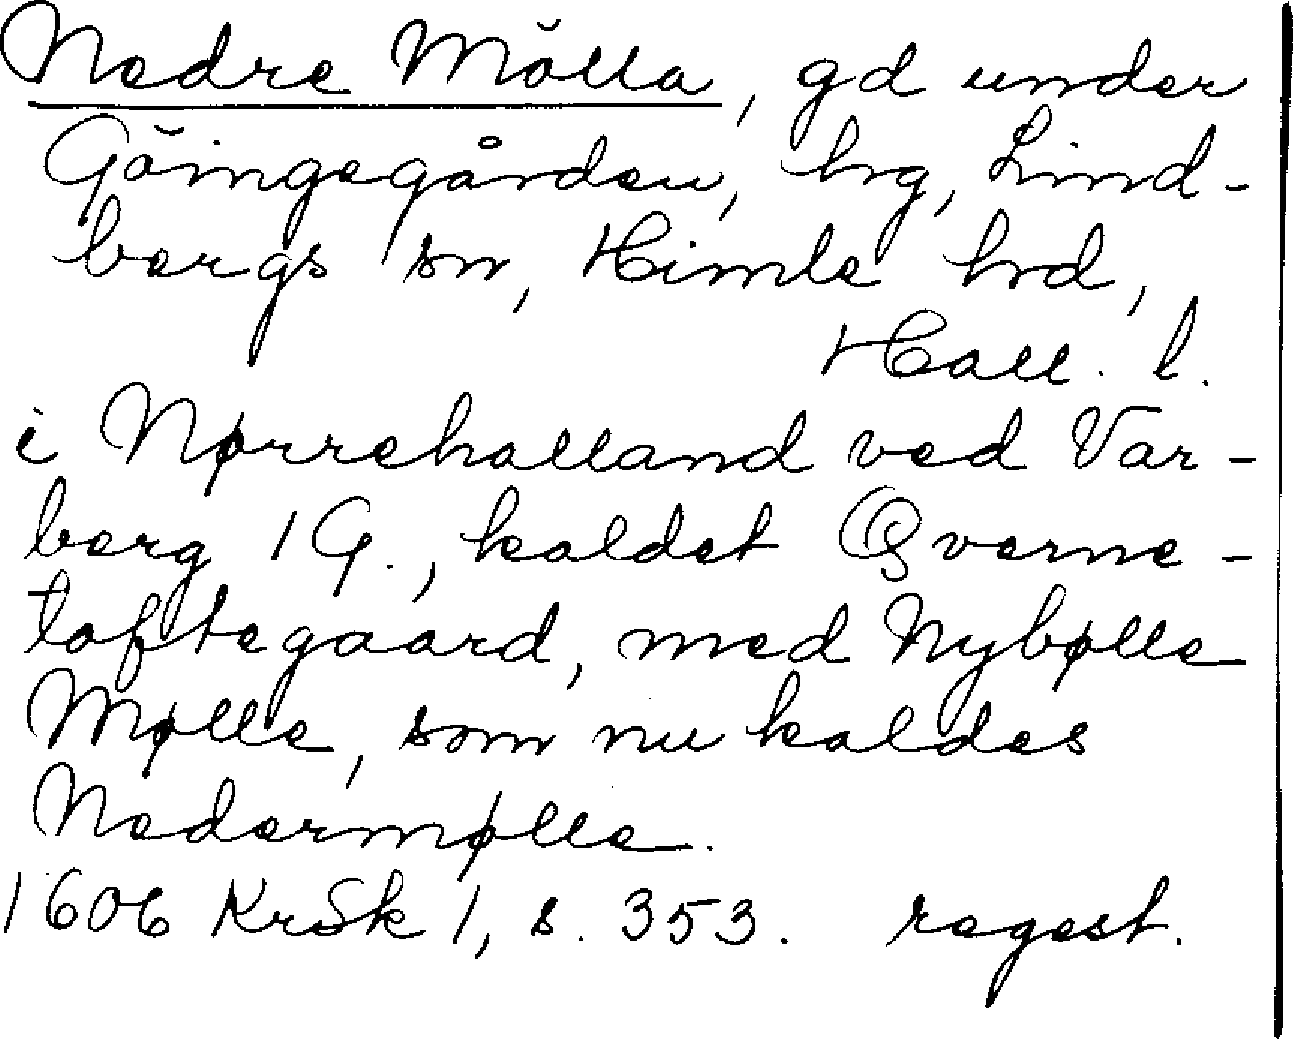 Nedre Mölla, gd under
Göingegården, hrg, Lind-
bergs sn, Himle hrd,
Hall. l.
i Nørrehalland ved Var-
berg 1 G., kaldet Qverne-
toftegaard, med Nybølle
Mølle, som nu kaldes
Nedermølle.
1606 KrSk 1, s. 353. regest.